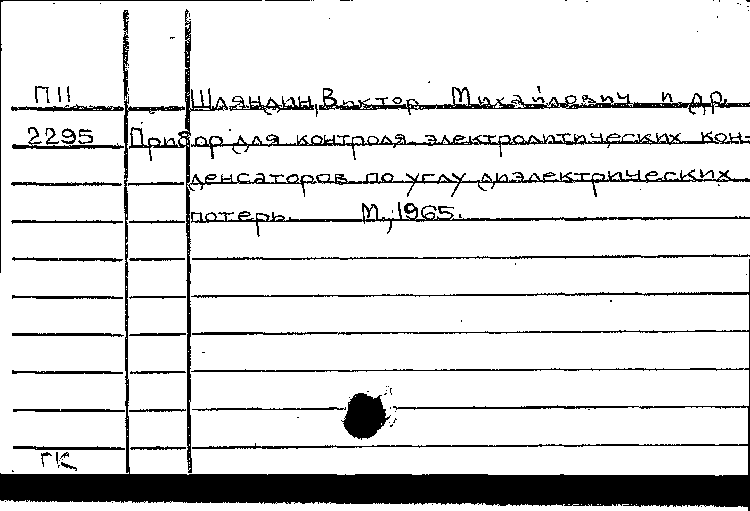 П11 Шляндин, Виктор Михайлович и др.
2295 Прибор для контроля электролитических кон-
денсаторов по углу диэлектрических
потерь. М., 1965.
ГК